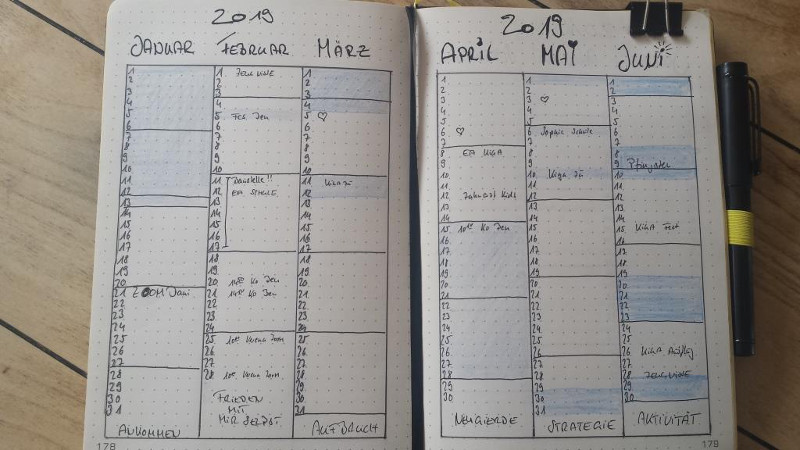 2019
JANUAR
FEBRUAR
MÄRZ
1
2
3
4
5
6
7
8
9
10
11
12
13
14
15
16
17
18
19
20
21 ZOOM Jani
22
23
24
25
26
27
28
29
30
31
ANKOMMEN
1
2
3
4
5
6
7
8
9
10
11 Danielle!!
12
13
14
15
16
17
18
19
20 Ko Jen
21 Ko Jen
22
23
24
25
26
27
28
FRIEDEN
MIT
MIR SELBST
1
2
3
4
5 ♡
6
7
8
9
10
11
12
13
14
15
16
17
18
19
20
21
22
23
24
25
26
27
28
29
30
31
AUFBRUCH
178
2019
APRIL
MAI
JUNI
1
2
3
4
5
6 ♡
7
8 EA KiGA
9
10
11
12 Zahnarzt Kids
13
14
15 Ko Jen
16
17
18
19
20
21
22
23
24
25
26
27
28
29
30
NEUGIERDE
1
2
3 ♡
4
5
6 Sophie Schule
7
8
9
10
11
12
13
14
15
16
17
18
19
20
21
22
23
24
25
26
27
28
29
30
31
STRATEGIE
1
2
3
4
5
6
7
8
9 Pfingsten
10
11
12
13
14
15 KiGA Fest
16
17
18
19
20
21
22
23
24
25
26 KiGA Ausflug
27
28 ZEUGNISSE
29
30
AKTIVITÄT
179